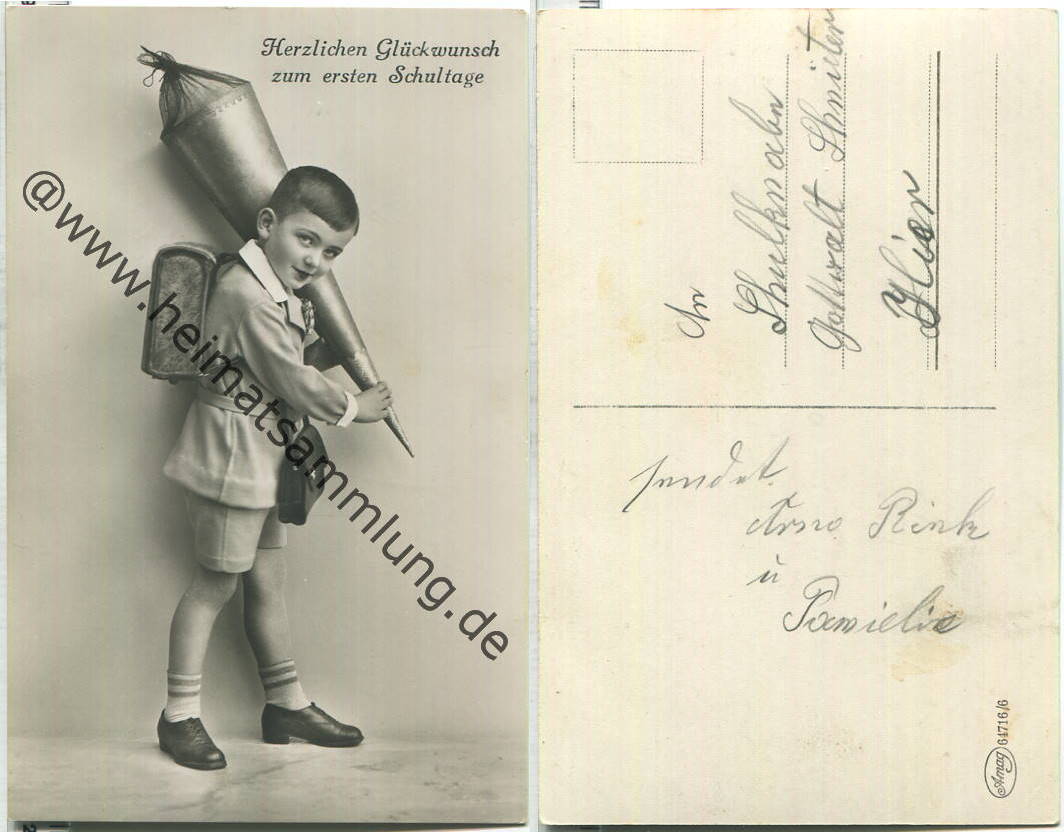 Herzlichen Glückwunsch
zum ersten Schultage
@www.heimatsammlung.de
An
Schulknabn
Gottwalt Schnüter
Hier
sendet
Arno Rink
u
Familie
Amag 64716/6